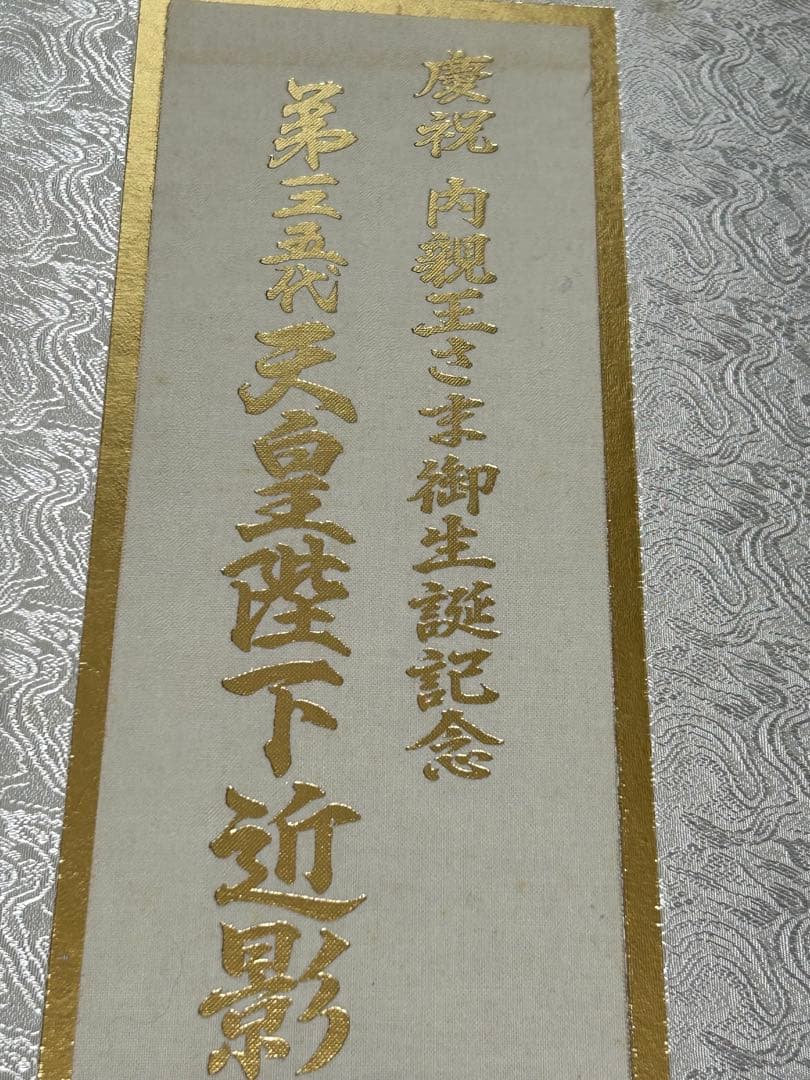 慶祝 内親王さま御生誕記念
第一二五代天皇陛下近影